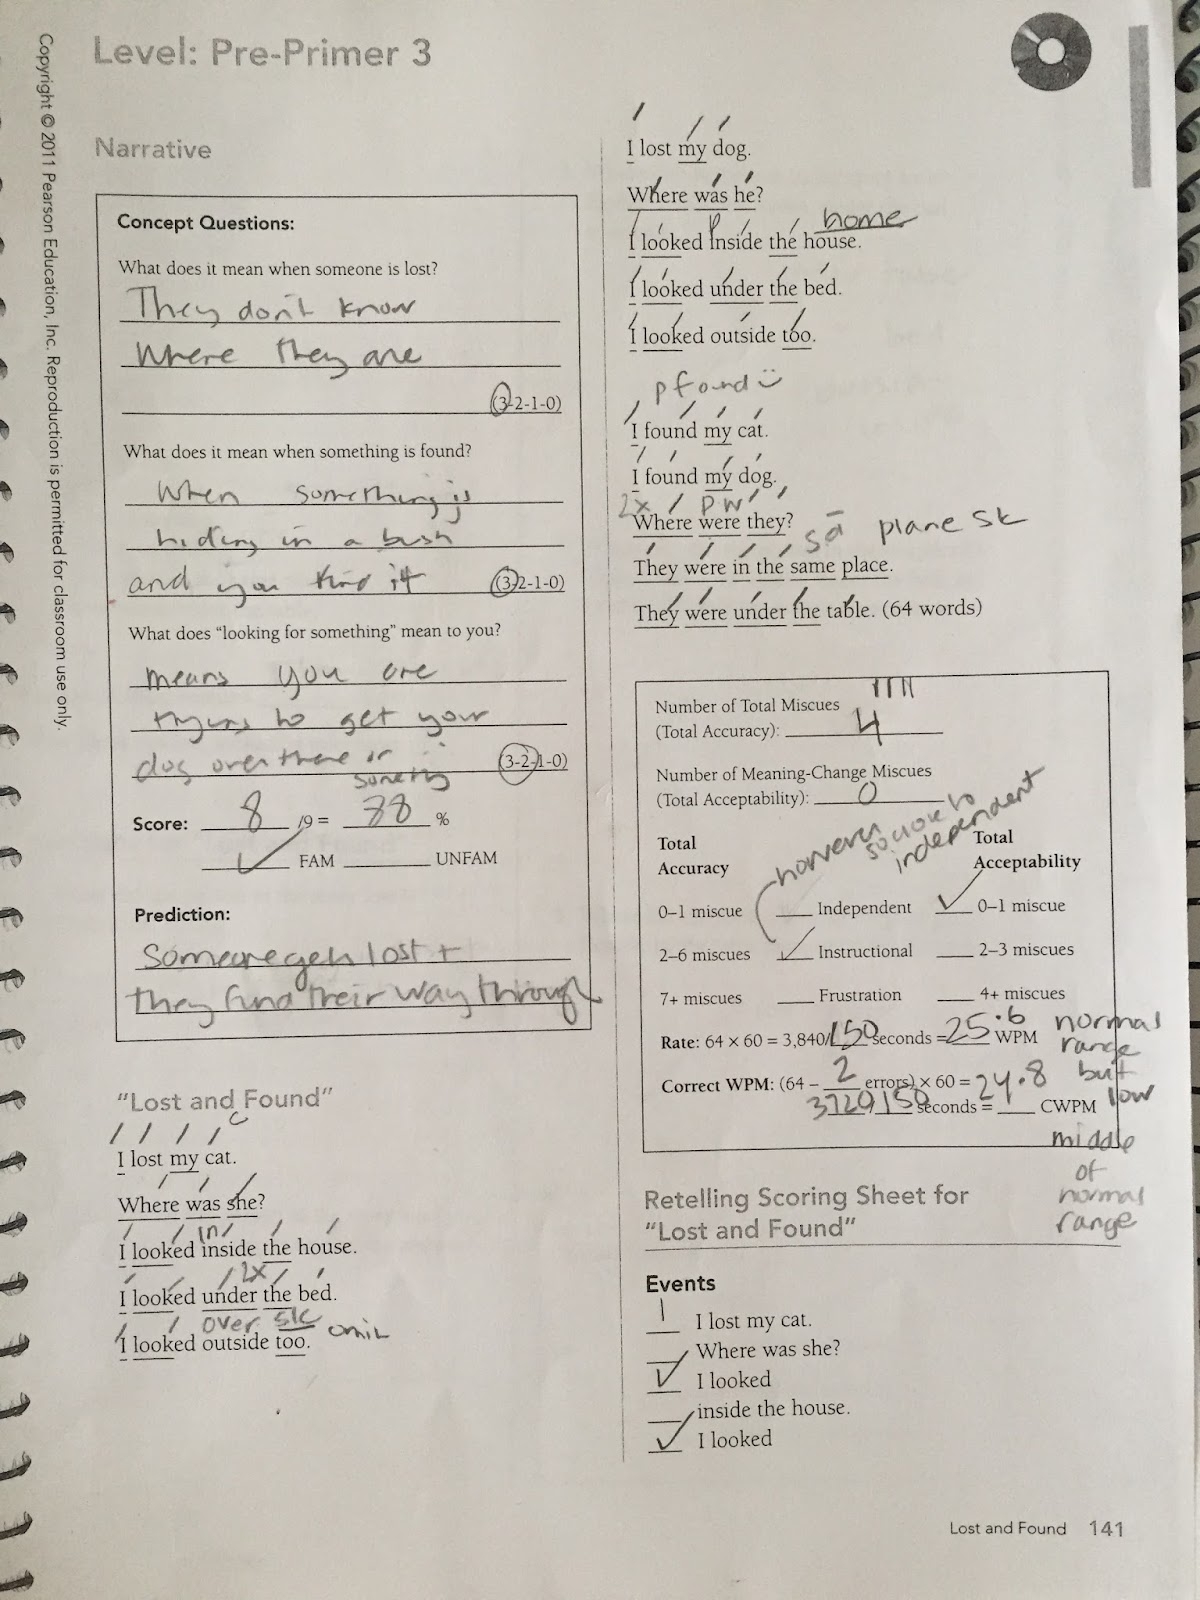 Level: Pre-Primer 3
Copyright © 2011 Pearson Education, Inc. Reproduction is permitted for classroom use only.
Narrative
Concept Questions:
What does it mean when someone is lost?
They don't know
where they are
(3-2-1-0)
What does it mean when something is found?
When something is
hiding in a bush
and you find it
(3-2-1-0)
What does "looking for something" mean to you?
means you are
trying to get your
dog over there or
(3-2-1-0)
Score: 8 /9 = 88 %
FAM UNFAM
Prediction:
Someone gets lost +
they find their way through
"Lost and Found"
c
I lost my cat.
Where was she?
in
I looked inside the house.
2x
I looked under the bed.
over sk
I looked outside too. omit
I lost my dog.
Where was he?
p home
I looked inside the house.
I looked under the bed.
I looked outside too.
p found
I found my cat.
I found my dog.
2x p w
Where were they?
plane sk
They were in the same place.
They were under the table. (64 words)
Number of Total Miscues
(Total Accuracy): 4
Number of Meaning-Change Miscues
(Total Acceptability): 0
however so close to independent
Total Accuracy
Total Acceptability
0–1 miscue Independent 0–1 miscue
2–6 miscues Instructional 2–3 miscues
7+ miscues Frustration 4+ miscues
Rate: 64 × 60 = 3,840/150 seconds = 25.6 WPM
Correct WPM: (64 – 2 errors) × 60 = 24.8
3720/150 seconds = CWPM
normal
range
but
low
middle
of
normal
range
Retelling Scoring Sheet for
"Lost and Found"
Events
I lost my cat.
Where was she?
I looked
inside the house.
I looked
Lost and Found 141